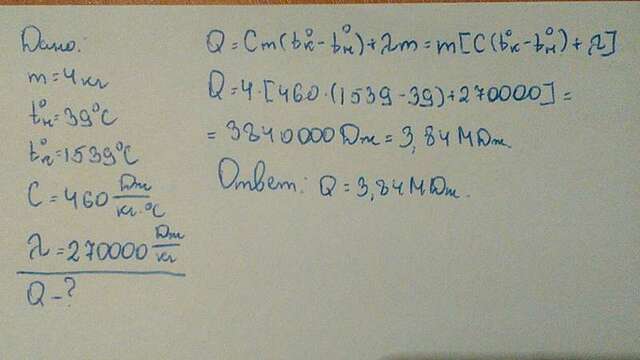 Дано:
m = 4 кг
t°н = 39°C
t°к = 1539°C
C = 460 Дж/кг·°C
λ = 270000 Дж/кг
Q - ?
Q = Cm(t°к - t°н) + λm = m[C(t°к - t°н) + λ]
Q = 4·[460·(1539 - 39) + 270000] =
= 3840000 Дж = 3,84 МДж.
Ответ: Q = 3,84 МДж.